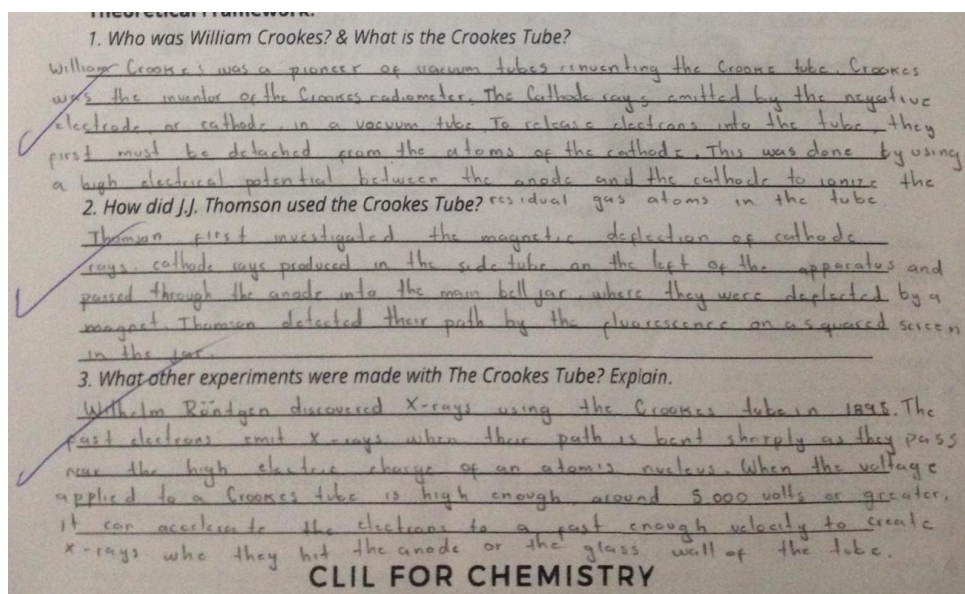 Theoretical Framework:
1. Who was William Crookes? & What is the Crookes Tube?
William Crookes was a pioneer of vacuum tubes, inventing the Crooke tube. Crookes
was the inventor of the Crookes radiometer. The Cathode rays emitted by the negative
electrode, or cathode, in a vacuum tube. To release electrons into the tube, they
first must be detached from the atoms of the cathode. This was done by using
a high electrical potential between the anode and the cathode to ionize the
residual gas atoms in the tube.
2. How did J.J. Thomson used the Crookes Tube?
Thomson first investigated the magnetic deflection of cathode
rays. cathode rays produced in the side tube on the left of the apparatus and
passed through the anode into the main bell jar, where they were deflected by a
magnet. Thomson detected their path by the fluorescence on a squared screen
in the jar.
3. What other experiments were made with The Crookes Tube? Explain.
Wilhelm Röntgen discovered X-rays using the Crookes tube in 1895. The
fast electrons emit X-rays when their path is bent sharply as they pass
near the high electric charge of an atom's nucleus. When the voltage
applied to a Crookes tube is high enough, around 5.000 volts or greater,
it can accelerate the electrons to a fast enough velocity to create
x-rays whe they hit the anode or the glass wall of the tube.
CLIL FOR CHEMISTRY